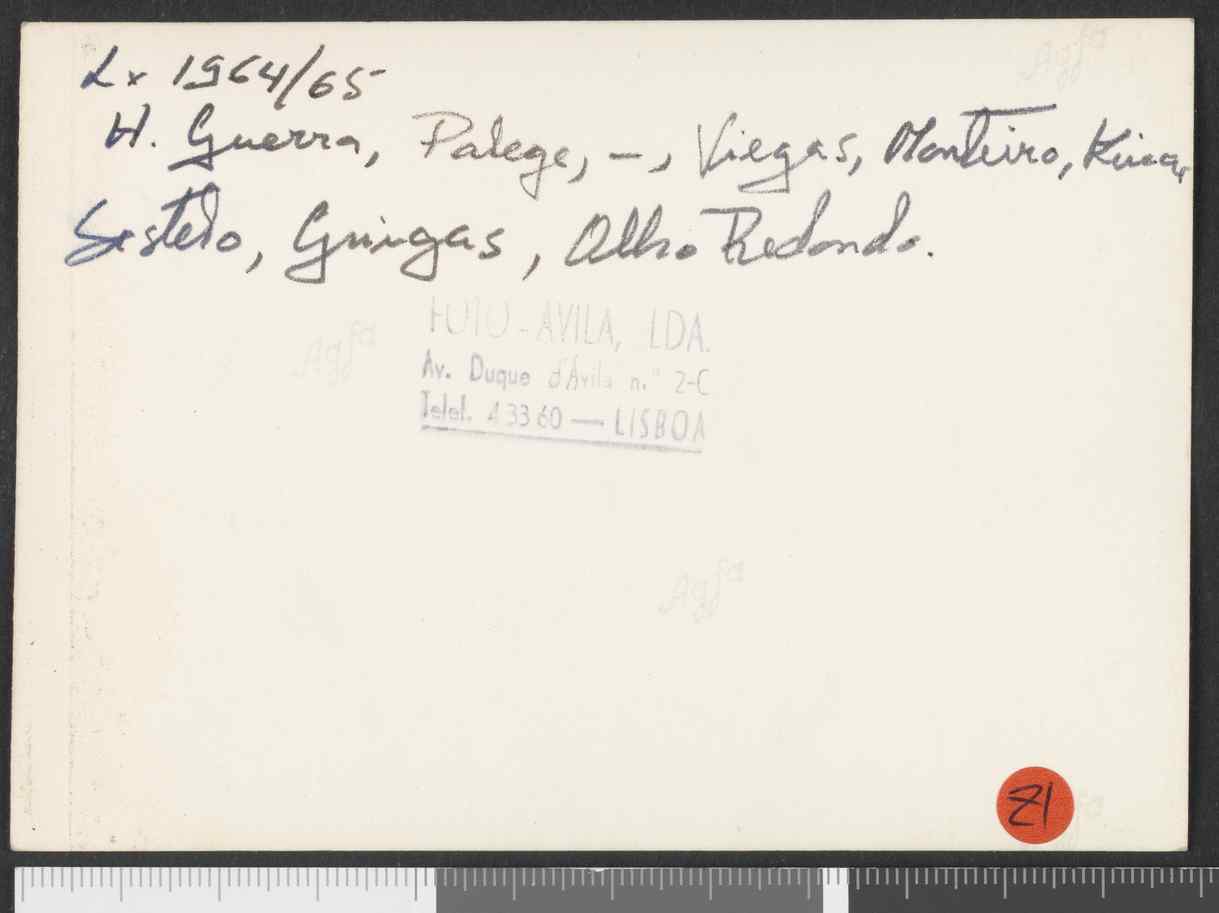 Lx 1964/65
H. Guerra, Palege, –, Viegas, Monteiro,
Gringas, Olho Redondo.
FOTO-AVILA, LDA.
Av. Duque d'Avila n.º 2-C
Telef. 43360 — LISBOA
Agfa
Agfa
Agfa
Z1